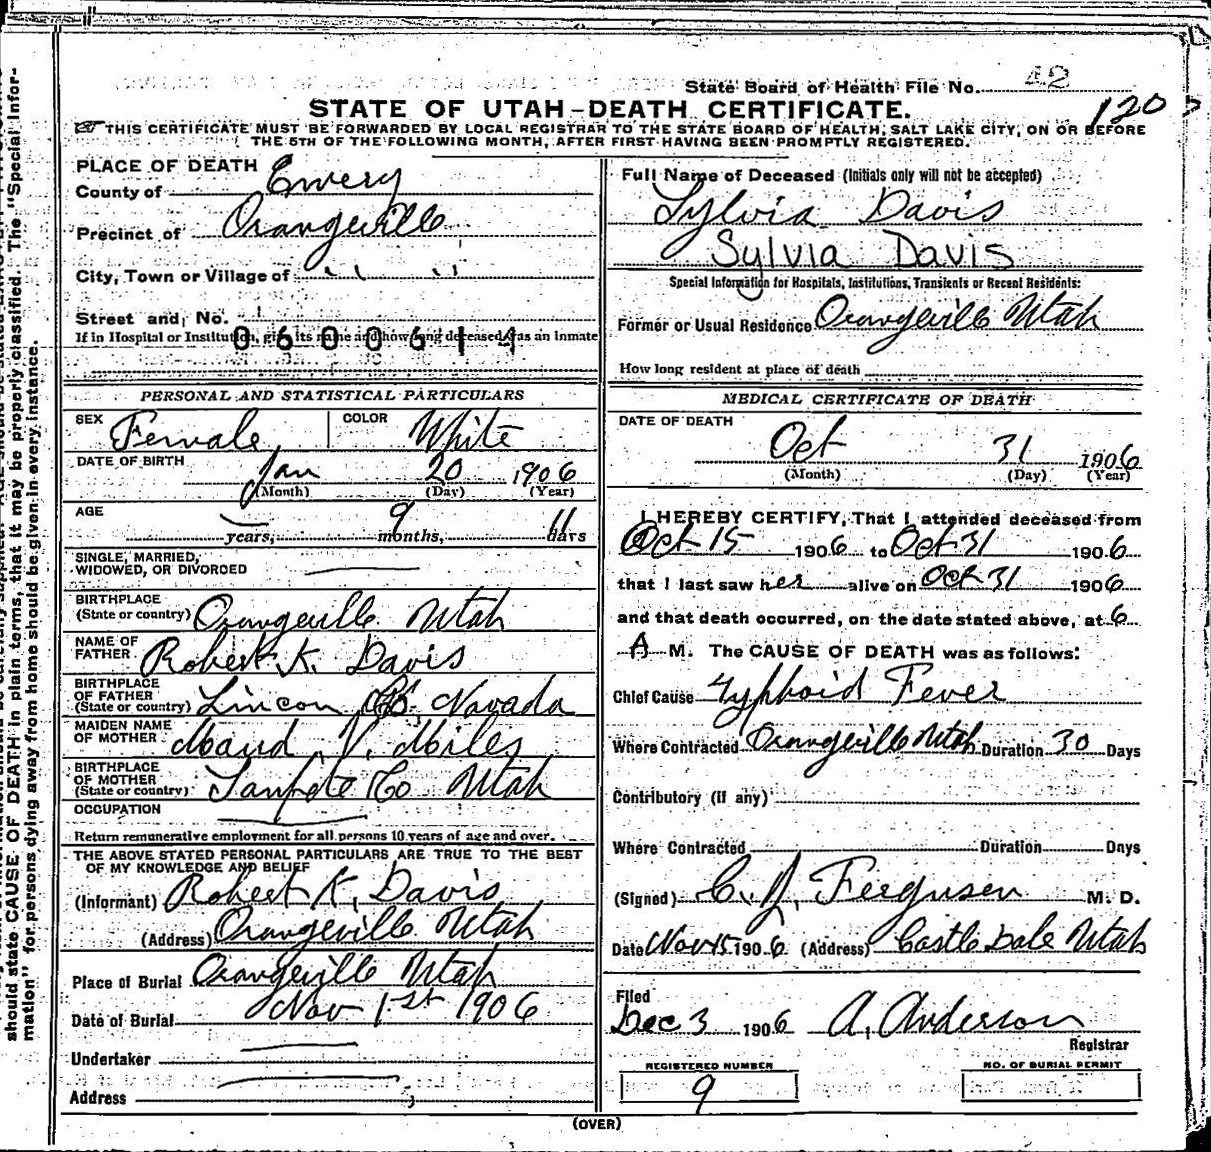 State Board of Health File No. 42
STATE OF UTAH-DEATH CERTIFICATE.
120
THIS CERTIFICATE MUST BE FORWARDED BY LOCAL REGISTRAR TO THE STATE BOARD OF HEALTH, SALT LAKE CITY, ON OR BEFORE
THE 5TH OF THE FOLLOWING MONTH, AFTER FIRST HAVING BEEN PROMPTLY REGISTERED.
PLACE OF DEATH
County of Emery
Precinct of Orangeville
City, Town or Village of " "
Street and No.
If in Hospital or Institution, give its name and how long deceased was an inmate
0600614
PERSONAL AND STATISTICAL PARTICULARS
SEX Female COLOR White
DATE OF BIRTH Jan 20 1906
(Month) (Day) (Year)
AGE
— years, 9 months, 11 days
SINGLE, MARRIED,
WIDOWED, OR DIVORCED
BIRTHPLACE
(State or country) Orangeville Utah
NAME OF
FATHER Robert K. Davis
BIRTHPLACE
OF FATHER
(State or country) Lincon Co. Navada
MAIDEN NAME
OF MOTHER Maud V. Miles
BIRTHPLACE
OF MOTHER
(State or country) Sanpete Co Utah
OCCUPATION
Return remunerative employment for all persons 10 years of age and over.
THE ABOVE STATED PERSONAL PARTICULARS ARE TRUE TO THE BEST
OF MY KNOWLEDGE AND BELIEF
(Informant) Robert K. Davis
(Address) Orangeville Utah
Place of Burial Orangeville Utah
Date of Burial Nov 1st 1906
Undertaker
Address
Full Name of Deceased (Initials only will not be accepted)
Sylvia Davis
Sylvia Davis
Special Information for Hospitals, Institutions, Transients or Recent Residents:
Former or Usual Residence Orangeville Utah
How long resident at place of death
MEDICAL CERTIFICATE OF DEATH
DATE OF DEATH
Oct 31 1906
(Month) (Day) (Year)
I HEREBY CERTIFY, That I attended deceased from
Oct 15 1906 to Oct 31 1906
that I last saw her alive on Oct 31 1906
and that death occurred, on the date stated above, at 6
A M. The CAUSE OF DEATH was as follows:
Chief Cause Typhoid Fever
Where Contracted Orangeville Utah Duration 30 Days
Contributory (if any)
Where Contracted Duration Days
(Signed) C. J. Fergusen M. D.
Date Nov 15 1906 (Address) Castle Dale Utah
Filed
Dec 3 1906 A. Anderson
Registrar
REGISTERED NUMBER
9
NO. OF BURIAL PERMIT
(OVER)
should state CAUSE OF DEATH in plain terms, that it may be properly classified. The "Special Infor-
mation" for persons dying away from home should be given in every instance.